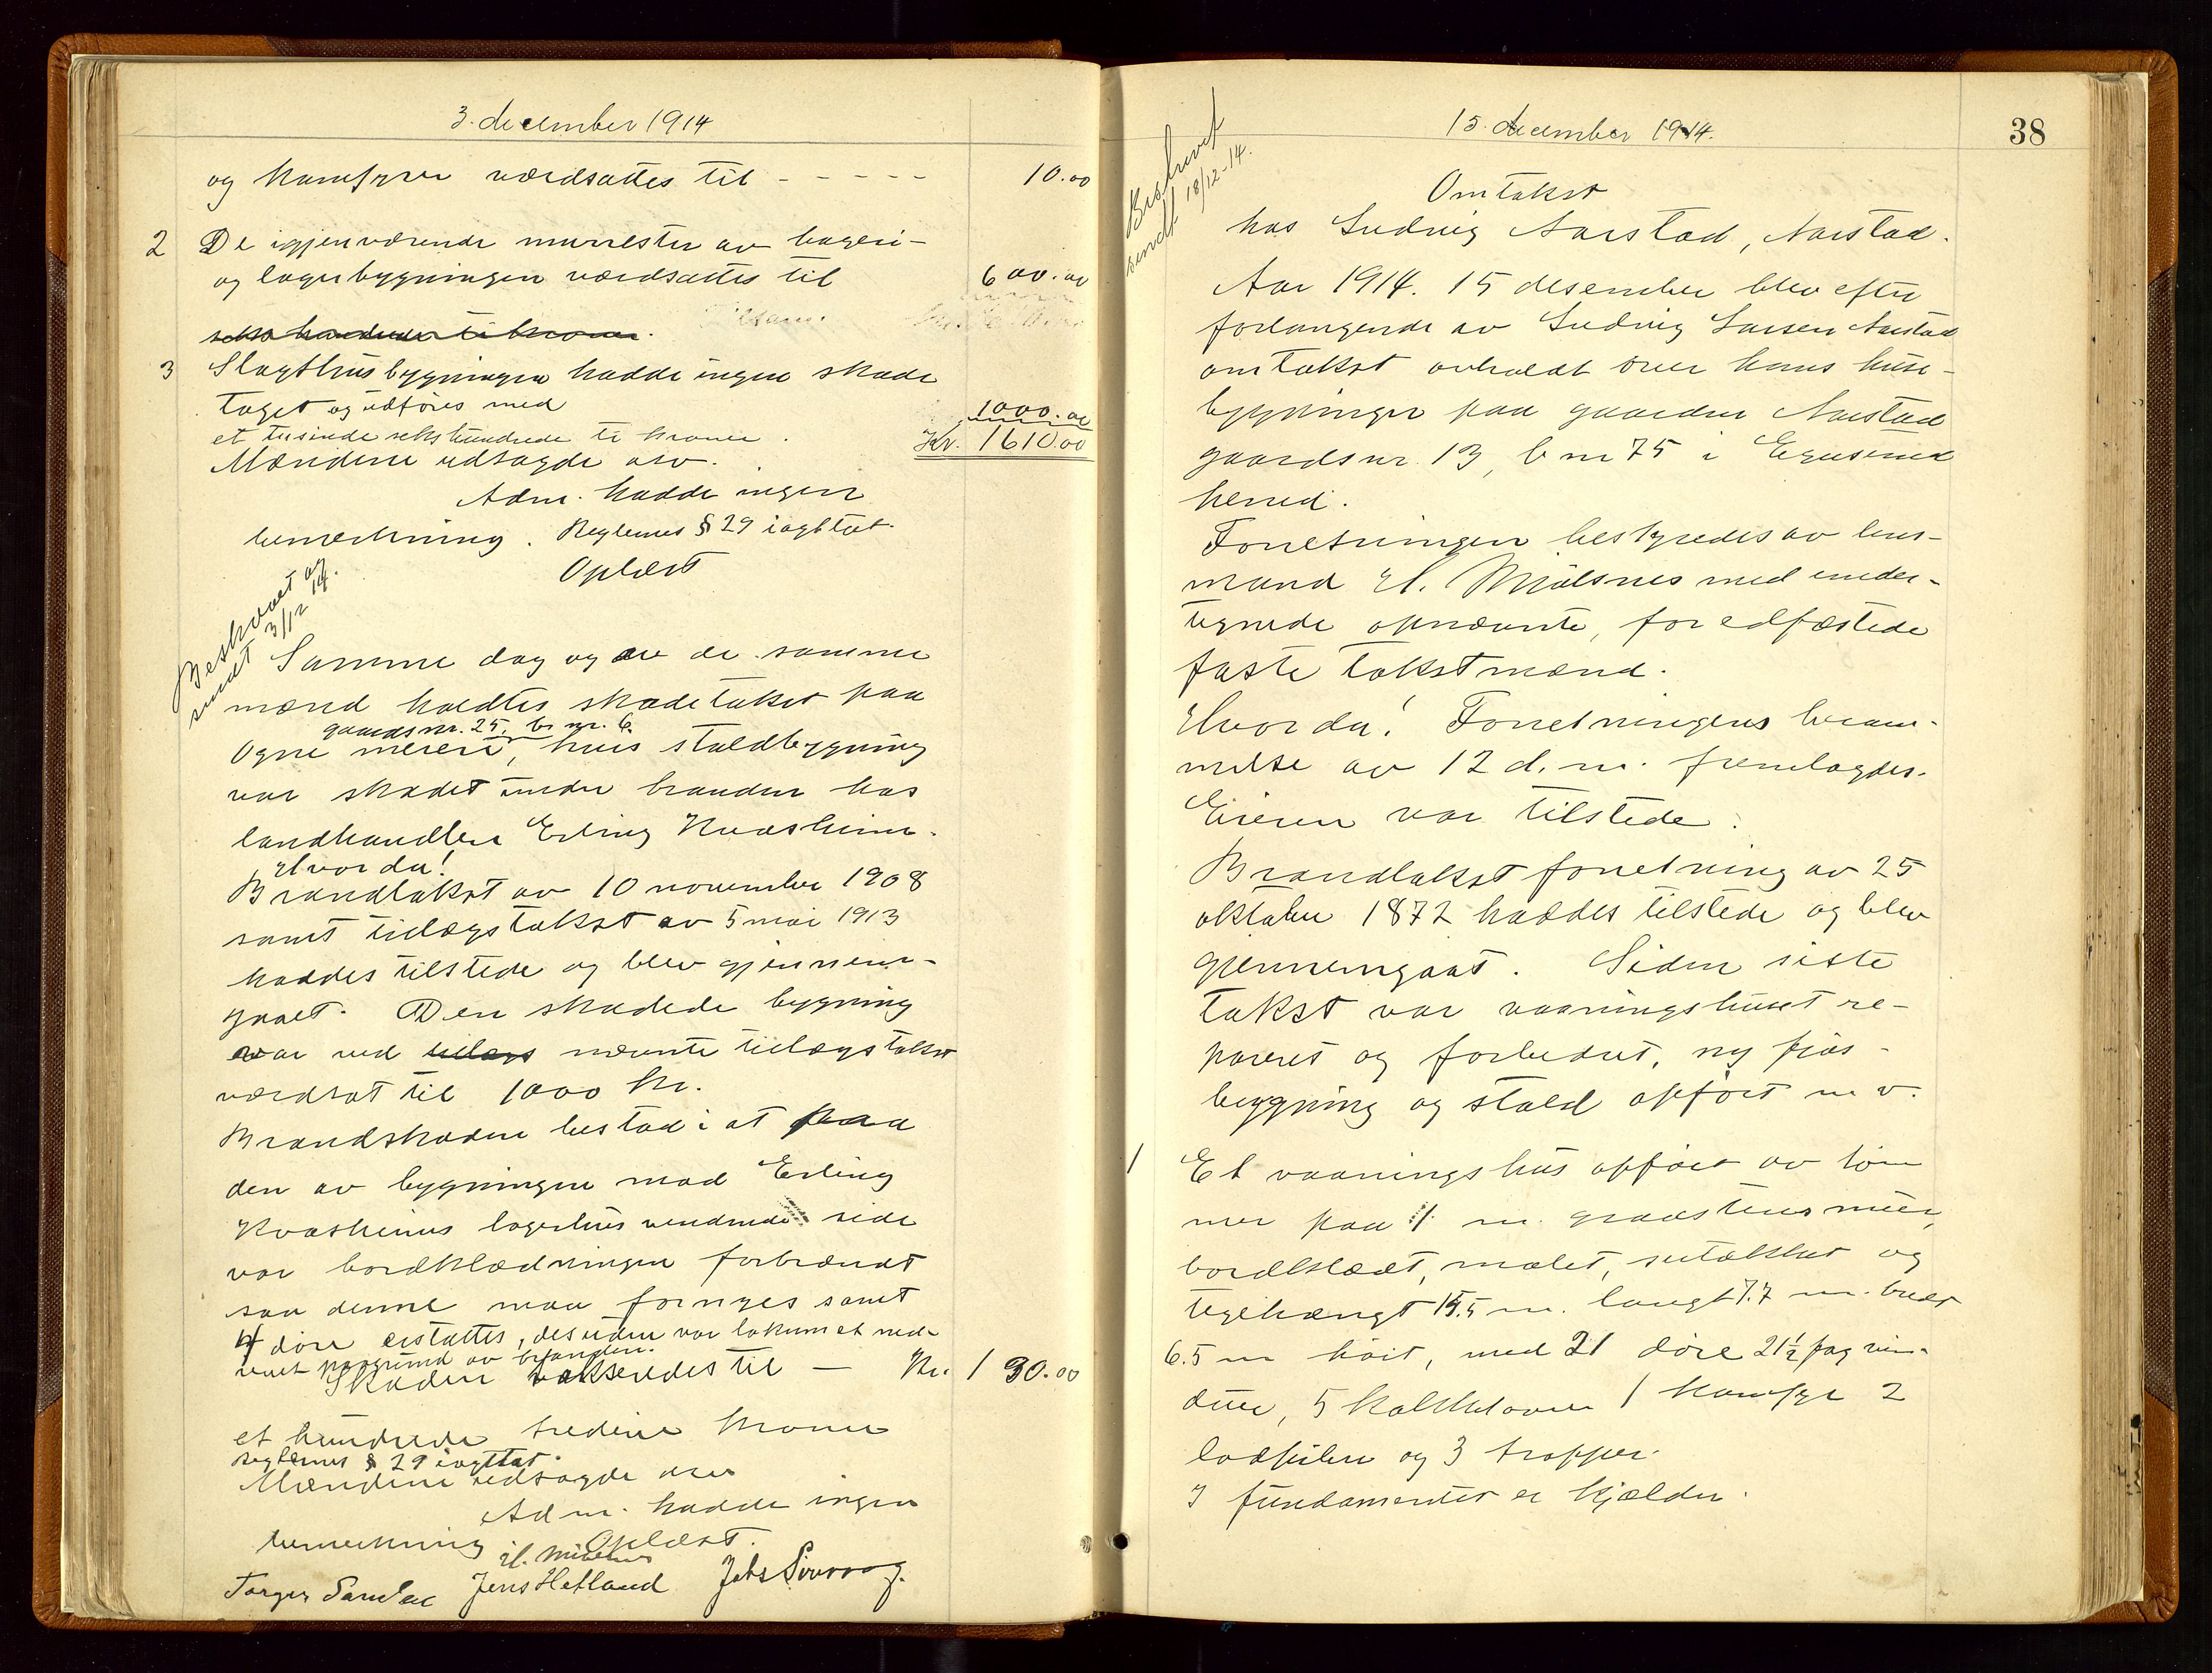 3. december 1914
og komfyrer værdsattes til - - - - - 10.00
2 De igjenværende murrester av bageri-
og lagerbygningen værdsattes til 600.00
seks hundrede ti kroner.
3 Slagthusbygningen hadde ingen skade
taget og utføres med 1000.00
et tusinde sekshundrede ti kroner. Kr. 1610.00
Mændene udsagde osv.
Adm. hadde ingen
bemerkning. Reglernes § 29 iagttat.
Oplæst
Beskrevet og
sendt 3/12 14.
Samme dag og av de samme
mænd holdtes skadetakst paa
gaardsnr. 25, br. nr. 6
Ogne meieri, hvis staldbygning
var skadet under branden hos
landhandler Erling Kvasheim.
Hvorda!
Brandtakst av 10 november 1908
samt tillægstakst av 5 mai 1913
haddes tilstede og blev gjennem-
gaaet. Den skadede bygning
var ved tillægs nævnte tillægstakst
værdsat til 1000 kr.
Brandskaden bestod i at paa
den av bygningen mod Erling
Kvasheims lagerhus vendende side
var bordklædningen forbrændt
saa denne maa fornyes samt
4 døre erstattes, desuden var lokumet ned-
revet paagrund av branden.
Skaden takseredes til — Kr. 130.00
et hundrede tredive kroner
reglernes § 29 iagttat.
Mændene udsagde osv
Adm. hadde ingen
bemerkning Oplæst.
H. Mjølsnes
Torger Jens Hetland Jobs
15. december 1914.
38
Beskrevet
sendt 18/12-14.
Omtakst
hos Ludvig Aarstad, Aarstad.
Aar 1914. 15 desember blev efter
forlangende av Ludvig Larsen Aarstad
omtakst avholdt over hans huse-
bygninger paa gaarden Aarstad
gaardsnr. 13, b nr 75 i Egersund
herred.
Forretningen bestyredes av lens-
mand H. Mjølsnes med under-
tegnede opnævnte, for edfæstede
faste takstmænd.
Hvorda! Forretningens beram-
melse av 12 d. m. fremlagdes.
Eieren var tilstede.
Brandtakstforretning av 25
oktober 1872 haddes tilstede og blev
gjennemgaat. Siden siste
takst var vaaningshuset re-
pareret og forbedret, ny fjøs-
bygning og stald opført m v.
1 Et vaaningshus opført av tøm
mer paa 1 m. graastens muer,
bordklædt, malet, sutækket og
teglhængt 15.5 m. langt 7.7 m. bredt
6.5 m høit, med 21 døre 21½ fag vin-
duer, 5 kakkelovner 1 komfyr 2
lodpiber og 3 trapper.
I fundamentet er kjælder.